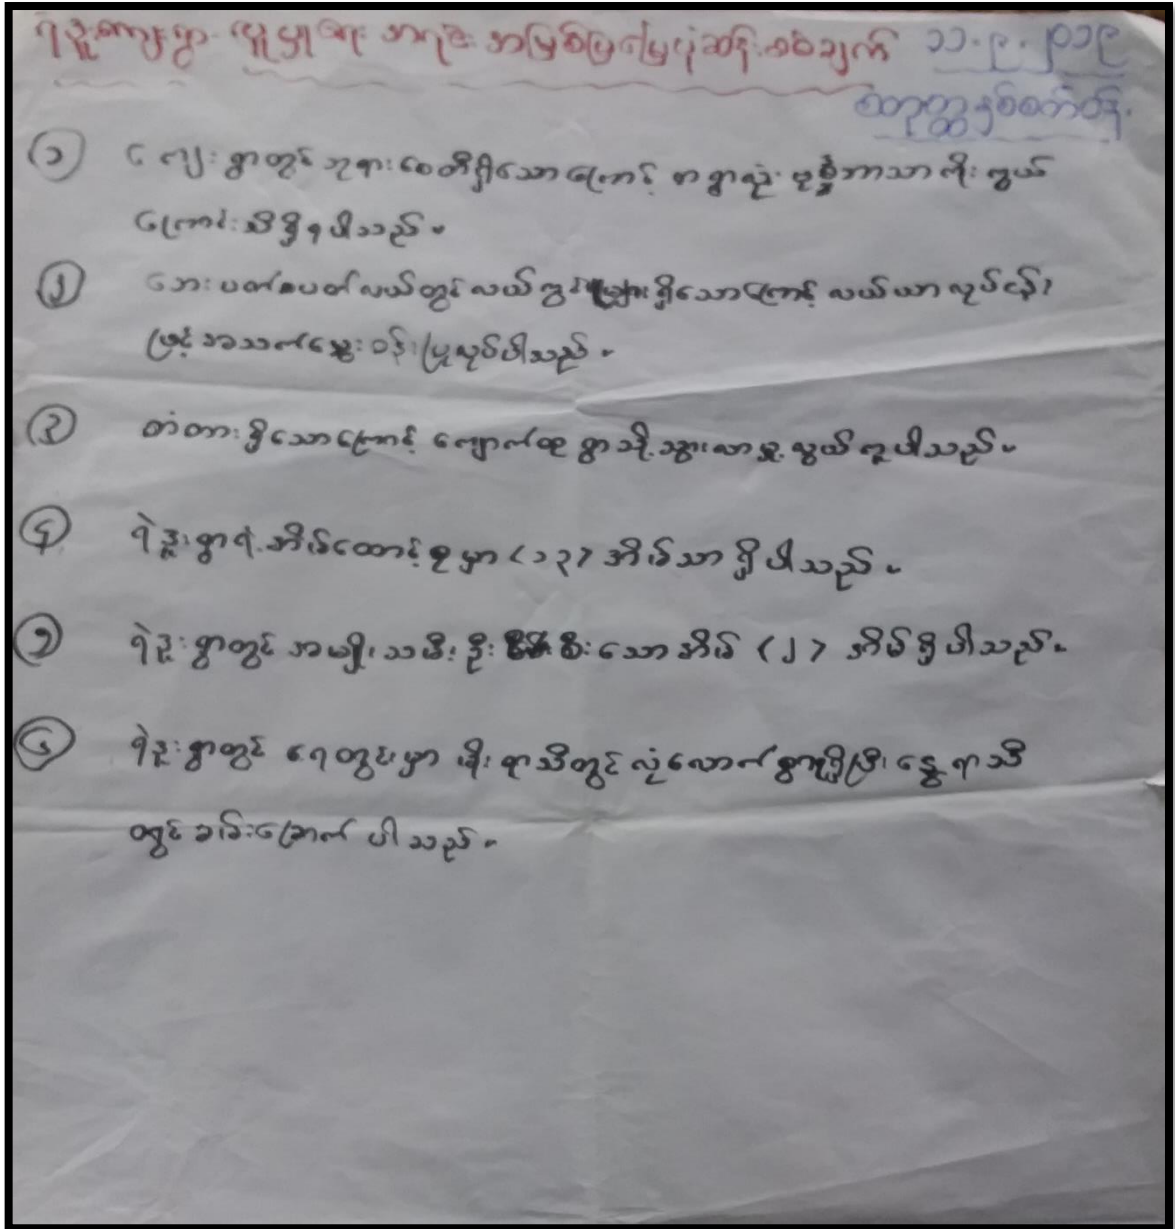 ရဲဒူးကျေးရွာ လူမှုရေး အရင်း အမြစ်ပြမြေပုံဆန်းစစ်ချက် ၁၁.၉.၂၀၁၉
စတုတ္ထနှစ်စက်ဝန်း
၁ ကျေးရွာတွင် ဘုရားစေတီရှိသောကြောင့် တရွာလုံး ဗုဒ္ဓဘာသာကိုးကွယ်
ကြောင်းသိရှိရပါသည်။
၂ ဘေးပတ်ပတ်လယ်တွင် လယ်ကွင်းများရှိသောကြောင့် လယ်ယာလုပ်ငန်း
ဖြင့် အသက်မွေးဝန်းပြုလုပ်ပါသည်။
၃ တံတားရှိသောကြောင့် ကျောက်ထု ရွာသို့ သွားလာမှု လွယ်ကူပါသည်။
၄ ရဲဒူးရွာရဲ့အိမ်ထောင်စုမှာ <၁၃> အိမ်သာ ရှိပါသည်။
၅ ရဲဒူးရွာတွင် အမျိုးသမီး ဦးစီးသောအိမ် <၂> အိမ်ရှိပါသည်။
၆ ရဲဒူးရွာတွင် ရေတွင်းမှာ မိုးရာသီတွင် လုံလောက်စွာရှိပြီး နွေရာသီ
တွင် ခမ်းခြောက်ပါသည်။